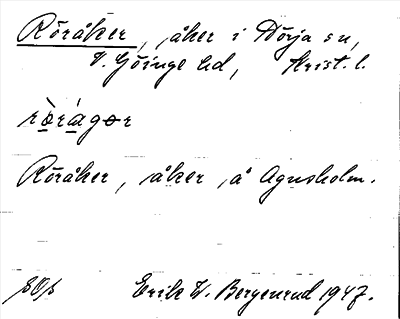 Röråker, åker i Dörja sn,
V. Göinge hd, Krist. l.
rö̀rágər
Röråker, åker å Agnsholm.
Erik W. Bergenrud 1947.